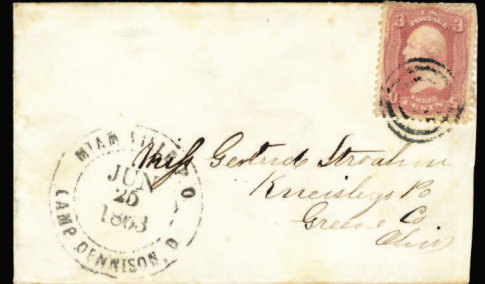 3 U.S. POSTAGE 3
THREE CENTS
MIAMIVILLE O
JUN
25
1863
CAMP DENNISON O
Miss Gertrude
Kneislys Po
Greene Co
Ohio